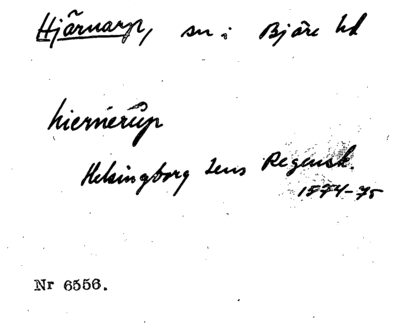 Hjärnarp, sn i Bjäre hd
hiernerup
Helsingborg Lens Regensk.
1574-75
Nr 6556.